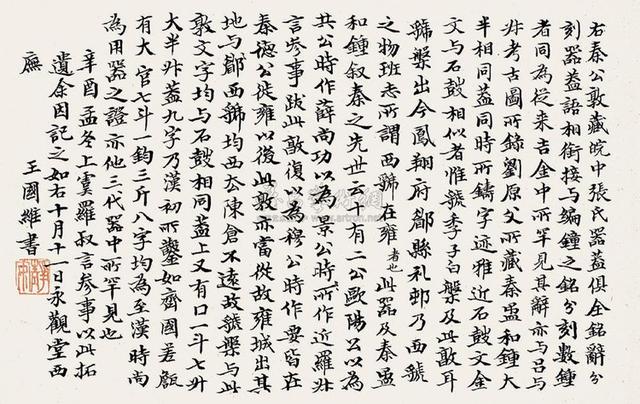 右秦公敦藏皖中張氏器蓋俱全銘辭分
刻器蓋語相銜接與編鐘之銘分刻數鐘
者同為從來吉金中所罕見其辭亦與呂與
叔考古圖所錄劉原父所藏秦盄和鍾大
半相同蓋同時所鑄字迹雅近石鼓文金
文與石鼓相似者惟虢季子白槃及此敦耳
虢槃出今鳳翔府郿縣礼邨乃西虢
之物班志所謂西虢在雍者也此器及秦盄
和鍾敘秦之先世云十有二公歐陽公以為
共公時作薛尚功以為景公時所作近羅叔
言參事跋此敦復以為穆公時作要皆在
秦德公徙雍以後此敦亦當從故雍城出其
地與郿西虢均西去陳倉不遠故虢槃與此
敦文字均與石鼓相同蓋上又有口一斗七升
大半升蓋九字乃漢初所鑿如齊國差甔
有大官七斗一鈞三斤八字均為至漢時尚
為用器之證亦他三代器中所罕見也
辛酉孟冬上虞羅叔言參事以此拓
遺余因記之如右十月十一日永觀堂西
廡 王國維書